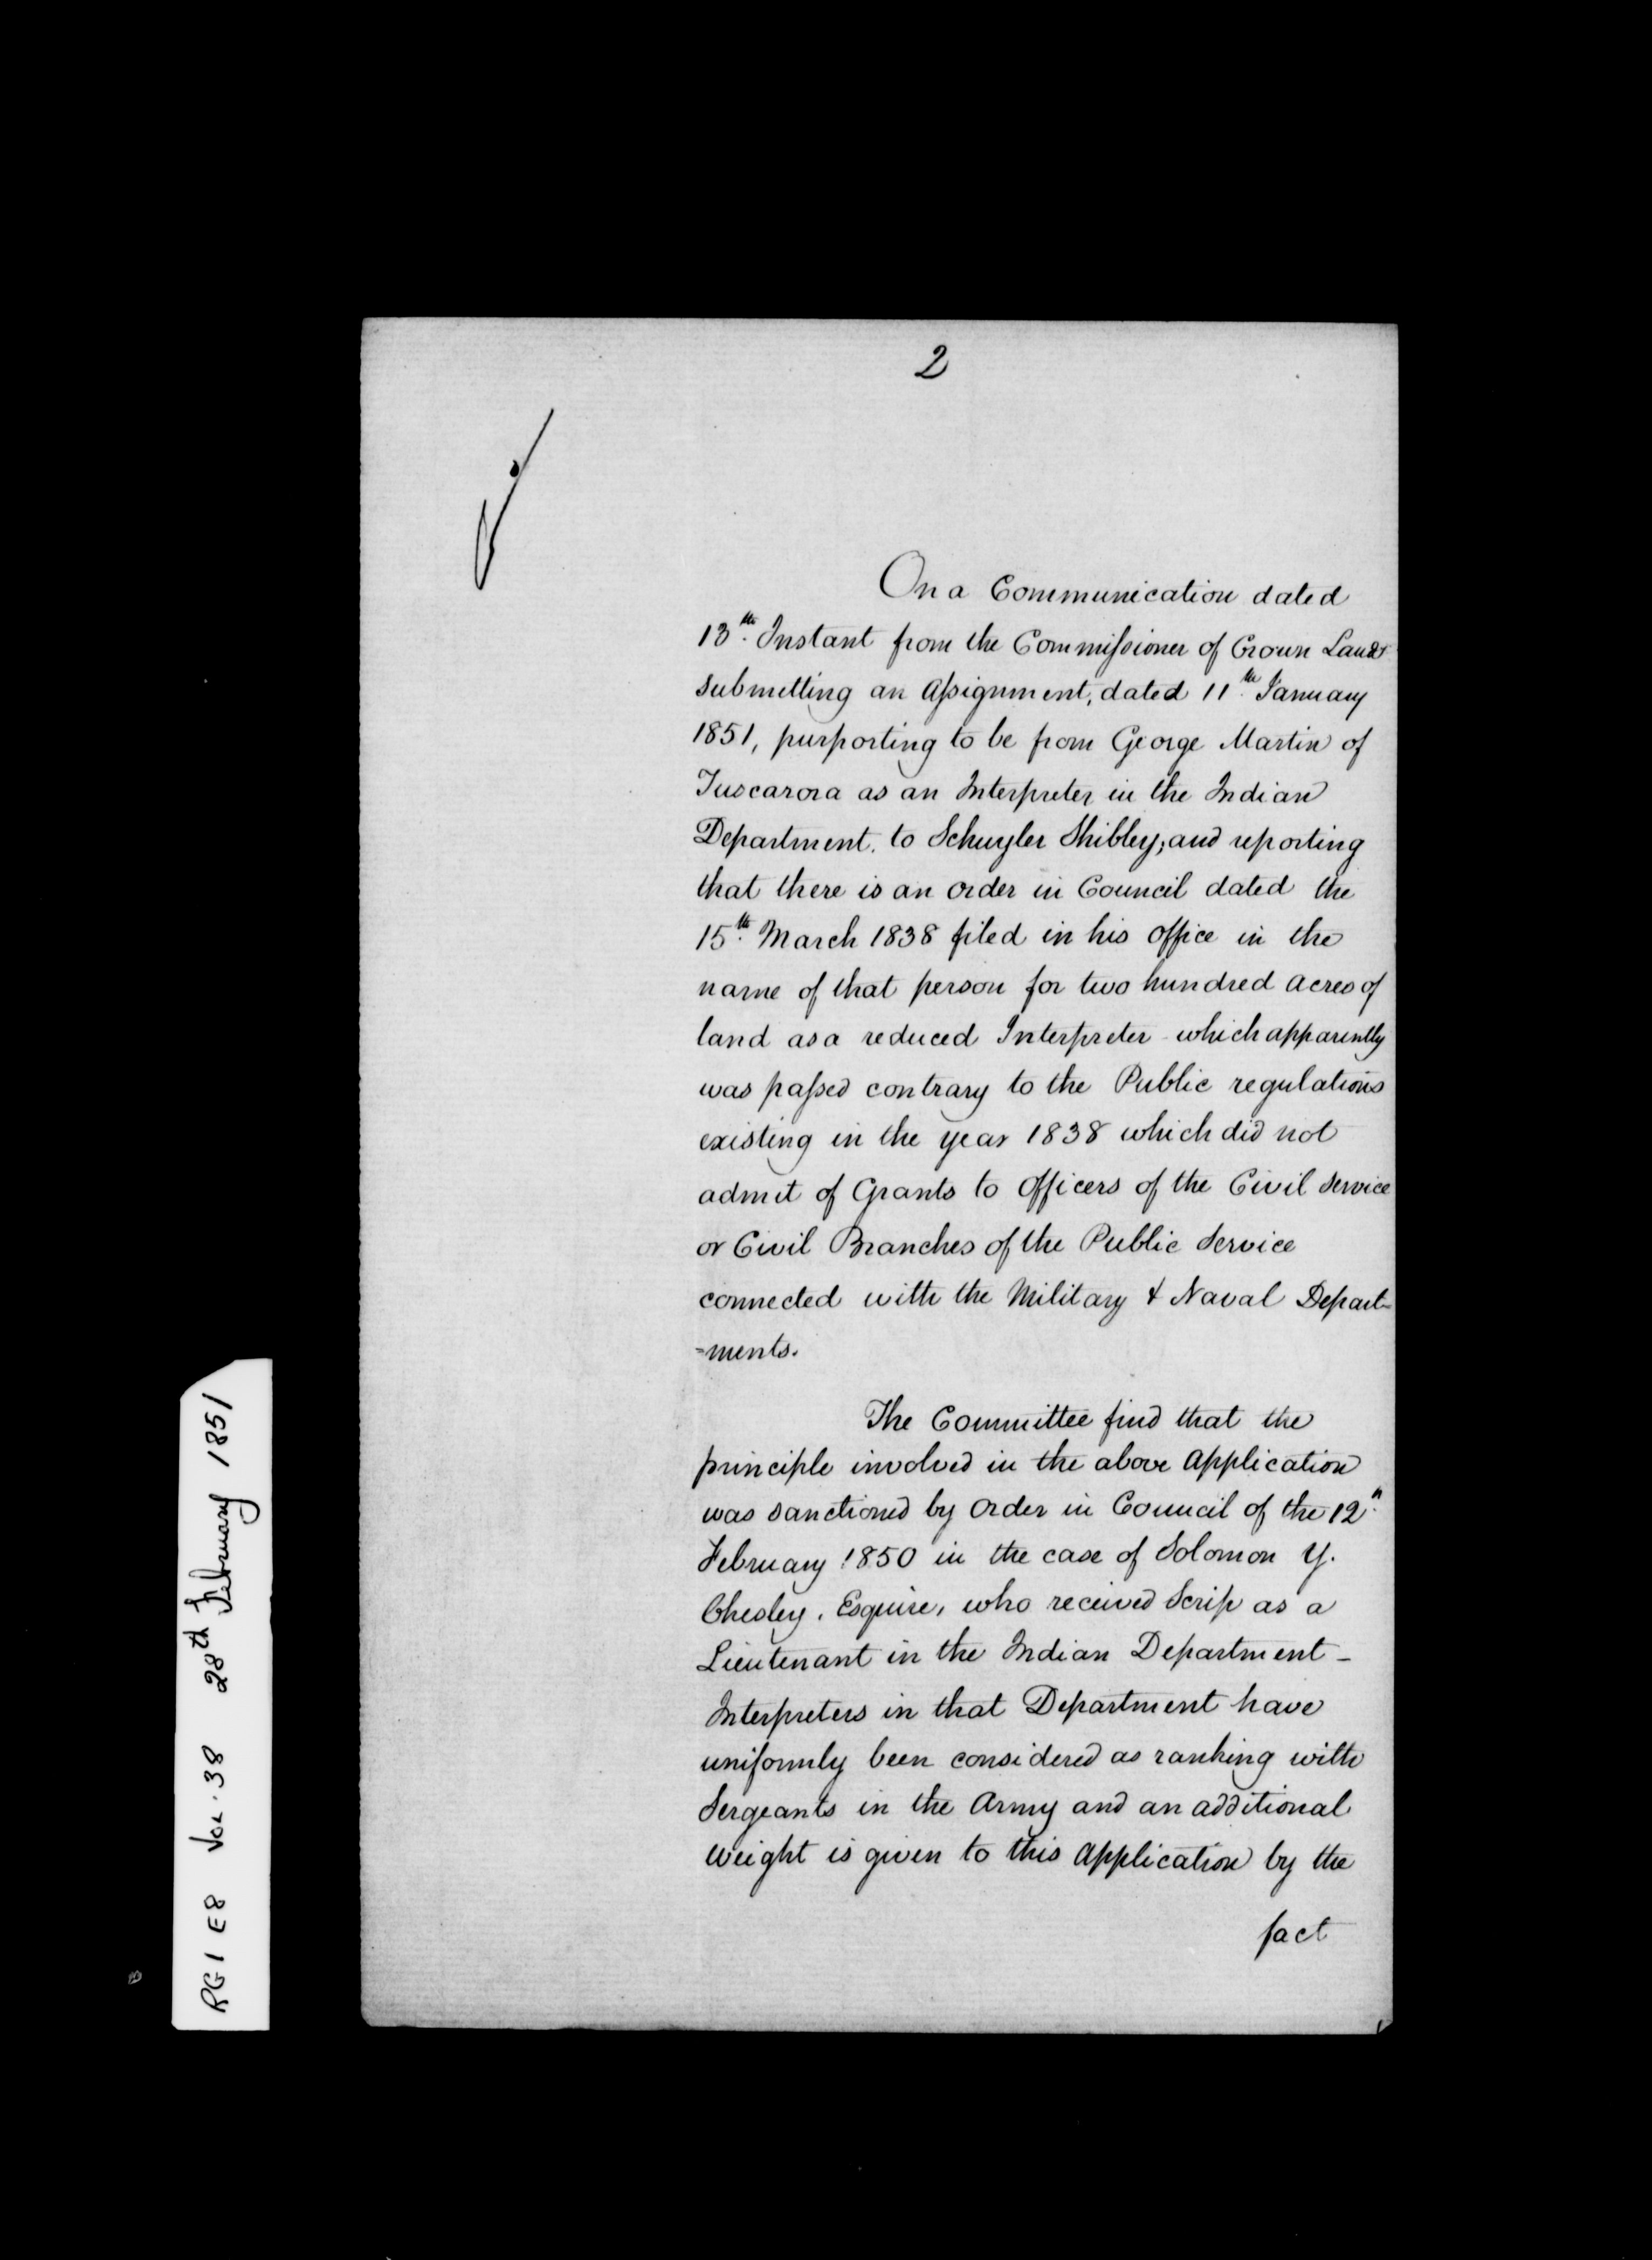 2
On a Communication dated
13th. Instant from the Commissioner of Crown Lands
submitting an Assignment, dated 11th. January
1851, purporting to be from George Martin of
Tuscarora as an Interpreter in the Indian
Department. to Schuyler Shibley; and reporting
that there is an order in Council dated the
15th. March 1838 filed in his office in the
name of that person for two hundred acres of
land as a reduced Interpreter - which apparently
was passed contrary to the Public regulations
existing in the year 1838 which did not
admit of Grants to Officers of the Civil Service
or Civil Branches of the Public Service
connected with the Military & Naval Depart=
=ments.
The Committee find that the
principle involved in the above Application
was sanctioned by order in Council of the 12th.
February 1850 in the case of Solomon Y.
Chesley, Esquire, who received Scrip as a
Lieutenant in the Indian Department -
Interpreters in that Department have
uniformly been considered as ranking with
Sergeants in the Army and an additional
weight is given to this Application by the
fact
RG1 E8 Vol. 38 28th February 1851